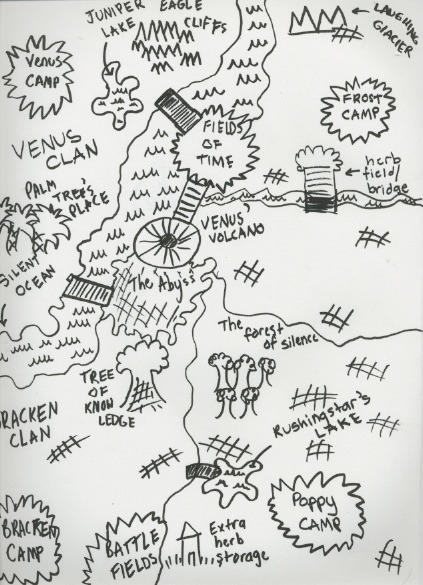 JUNIPER
LAKE
EAGLE
CLIFFS
LAUGHING
GLACIER
VENUS
CAMP
FROST
CAMP
FIELDS
OF
TIME
VENUS
CLAN
herb
field/
bridge
PALM
TREES
PLACE
VENUS'
VOLCANO
SILENT
OCEAN
The Abyss
The forest
of silence
TREE
OF
KNOW
LEDGE
Rushingstar's
LAKE
BRACKEN
CLAN
BRACKEN
CAMP
BATTLE
FIELDS
Extra
herb
storage
Poppy
CAMP